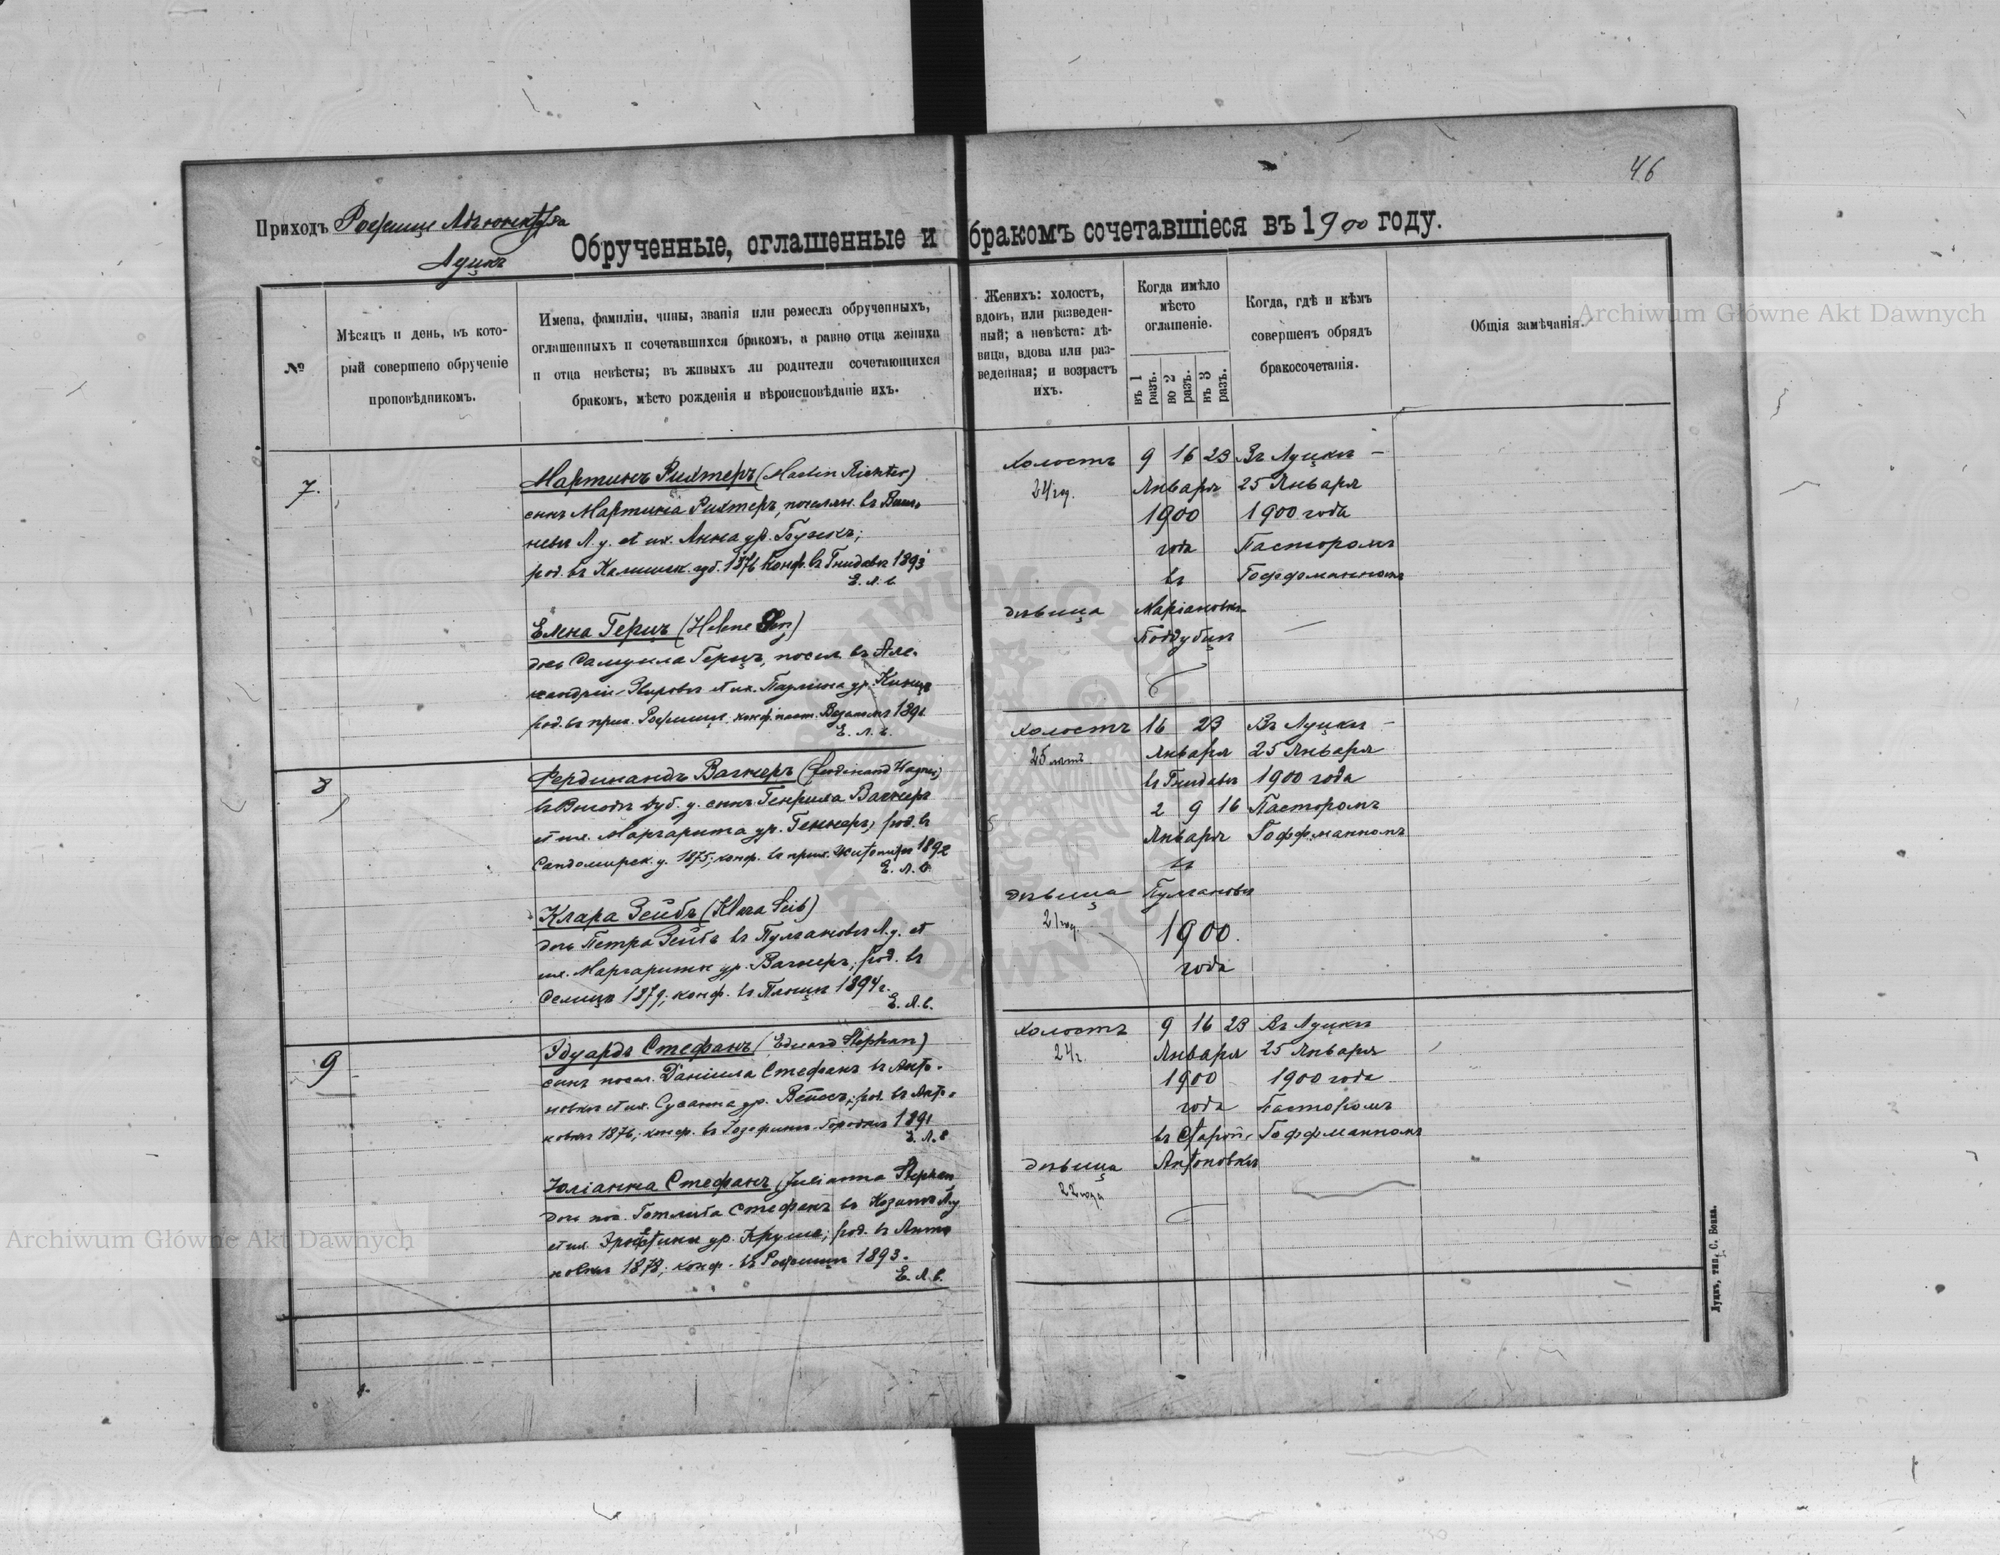 46
Приходъ Рожище Адъюнктура
Луцкъ
Обрученные, оглашенные и бракомъ сочетавшіеся въ 1900 году.
№
Мѣсяцъ и день, въ кото-
рый совершено обрученіе
проповѣдникомъ.
Имена, фамиліи, чины, званія или ремесла обрученныхъ,
оглашенныхъ и сочетавшихся бракомъ, а равно отца жениха
и отца невѣсты; въ живыхъ ли родители сочетающихся
бракомъ, мѣсто рожденія и вѣроисповѣданіе ихъ.
Женихъ: холостъ,
вдовъ, или разведен-
ный; а невѣста: дѣ-
вица, вдова или раз-
веденная; и возрастъ
ихъ.
Когда имѣло
мѣсто
оглашеніе.
въ 1 разъ.
во 2 разъ.
въ 3 разъ.
Когда, гдѣ и кѣмъ
совершенъ обрядъ
бракосочетанія.
Общія замѣчанія.
7.
Мартинъ Рихтеръ (Martin Richter)
сынъ Мартина Рихтеръ, поселян. въ
Л. у. et ux. Анна ур.
род. въ Калишск. губ. 1876 конф. въ Гнидавѣ 1893
Е. Л. в.
Елена Герцъ (Helene Herz)
дочь Самуила Герцъ, посел. въ Але-
ксандріи et ux. Паулина ур.
род. въ прих. Рожище конф. паст. 1891
Е. Л. в.
холостъ
24 г.
дѣвица
9 16 23
Января
1900
года
въ
Маріановкѣ
Поддубцы
Въ Луцкѣ –
25 Января
1900 года
Пасторомъ
Гоффманномъ
8
Фердинандъ Вагнеръ (Ferdinand Wagner)
въ Дуб. у. сынъ Генриха Вагнеръ
et ux. Маргарита ур. Геннеръ, род. въ
Сандомирск. у. 1875; конф. въ прих. Житомиръ 1892
Е. Л. в.
Клара Зейбъ (Klara Seib)
дочь Петра Зейбъ въ Пулгановѣ Л. у. et
ux. Маргарита ур. Вагнеръ; род. въ
1879; конф. въ 1894 г.
Е. Л. в.
холостъ
25 лѣтъ
дѣвица
21 год.
16 23
Января
въ Гнидавѣ
2 9 16
Января
въ
Пулгановѣ
1900.
года
Въ Луцкѣ –
25 Января
1900 года
Пасторомъ
Гоффманномъ
9
Эдуардъ Стефанъ (Eduard Stephan)
сынъ посел. Даніила Стефанъ въ Анто-
новкѣ et ux. Сусанна ур. род. въ Анто-
новкѣ 1876; конф. въ Іозефинъ 1891
Е. Л. в.
Юліанна Стефанъ (Julianna Stephan
дочь пос. Готлиба Стефанъ въ Л. у.
et ux. Эрнестина ур. Крузе; род. въ Анто
новкѣ 1878; конф. въ Рожище 1893.
Е. Л. в.
холостъ
24 г.
дѣвица
22 года
9 16 23
Января
1900
года
въ Старой
Антоновкѣ
Въ Луцкѣ
25 Января
1900 года
Пасторомъ
Гоффманномъ
Луцкъ, тип. С. Бонка.
Archiwum Główne Akt Dawnych
Archiwum Główne Akt Dawnych